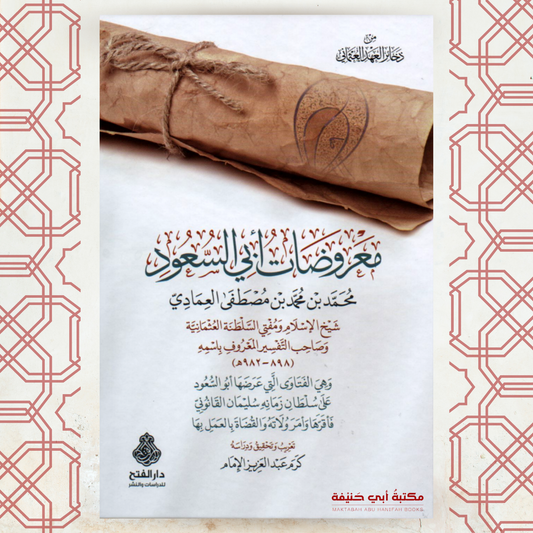 من
ذخائر العهد العثماني
مَعْرُوضَات أبي السُّعُود
مُحَمَّد بْن مُحَمَّد بْن مُصْطَفَى العِمَادِيّ
شَيْخ الإِسْلَام وَمُفْتِي السَّلْطَنَة العُثْمَانِيَّة
وَصَاحِب التَّفْسِير المَعْرُوف بِاسْمِهِ
(٨٩٨-٩٨٢هـ)
وَهِيَ الفَتَاوَى الَّتِي عَرَضَهَا أَبُو السُّعُود
عَلَى سُلْطَان زَمَانِهِ سُلَيْمَان القَانُونِيّ
فَأَقَرَّهَا وَأَمَرَ وُلَاتَهُ وَالقُضَاةَ بِالعَمَلِ بِهَا
تَعْرِيب وَتَحْقِيق وَدِرَاسَة
كَرَم عَبْد العَزِيز الإِمَام
دار الفتح
للدراسات والنشر
مكتبة أبي حنيفة
MAKTABAH ABU HANIFAH BOOKS